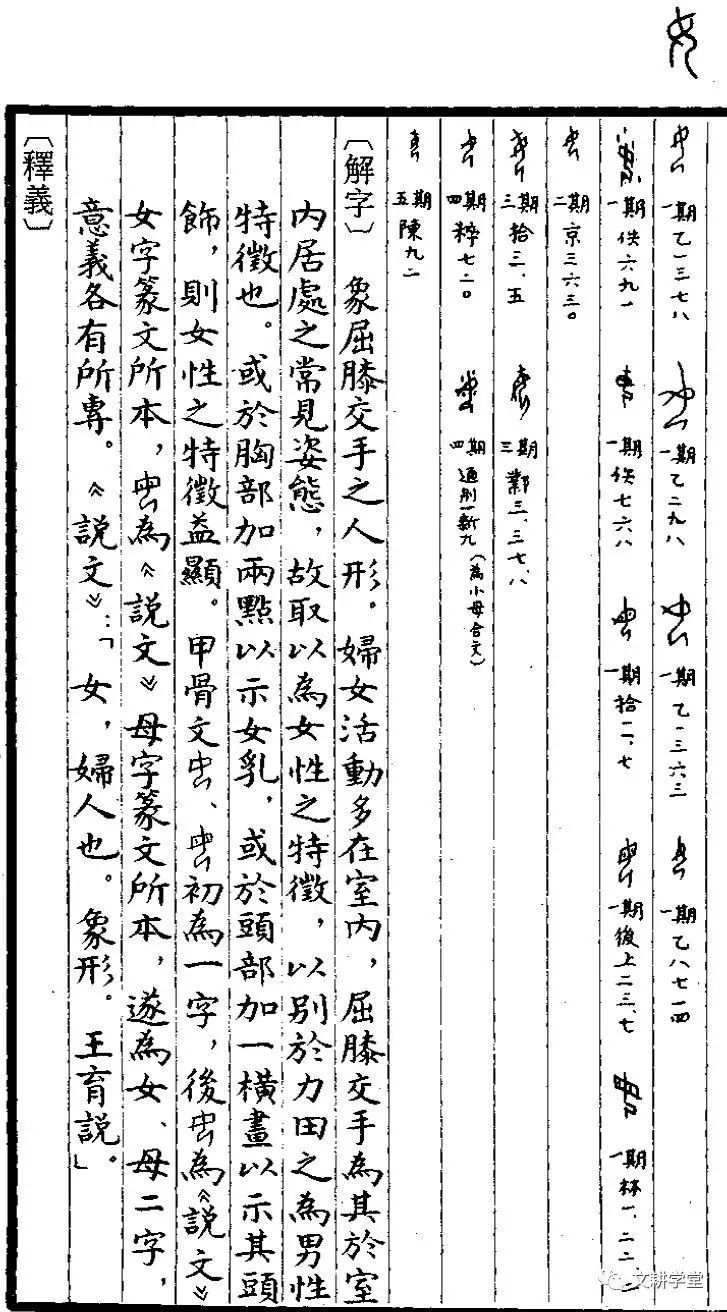 女
一期 乙一三七八
一期 乙二九八
一期 乙一三六三
一期 乙八七一四
一期 佚六九一
一期 佚七六八
一期 拾一一、七
一期 後上二三、七
一期 林一、二二、
二期 京三六三〇
三期 拾三、五
三期 鄴三、三七、八
四期 粹七二〇
四期 通別一新九（為小母合文）
五期 陳九二
〔解字〕 象屈膝交手之人形。婦女活動多在室內，屈膝交手為其於室
內居處之常見姿態，故取以為女性之特徵，以別於力田之為男性
特徵也。或於胸部加兩點以示女乳，或於頭部加一橫畫以示其頭
飾，則女性之特徵益顯。甲骨文、初為一字，後為《說文》
女字篆文所本，為《說文》母字篆文所本，遂為女、母二字，
意義各有所專。《說文》：「女，婦人也。象形。王育說。」
〔釋義〕
文耕学堂